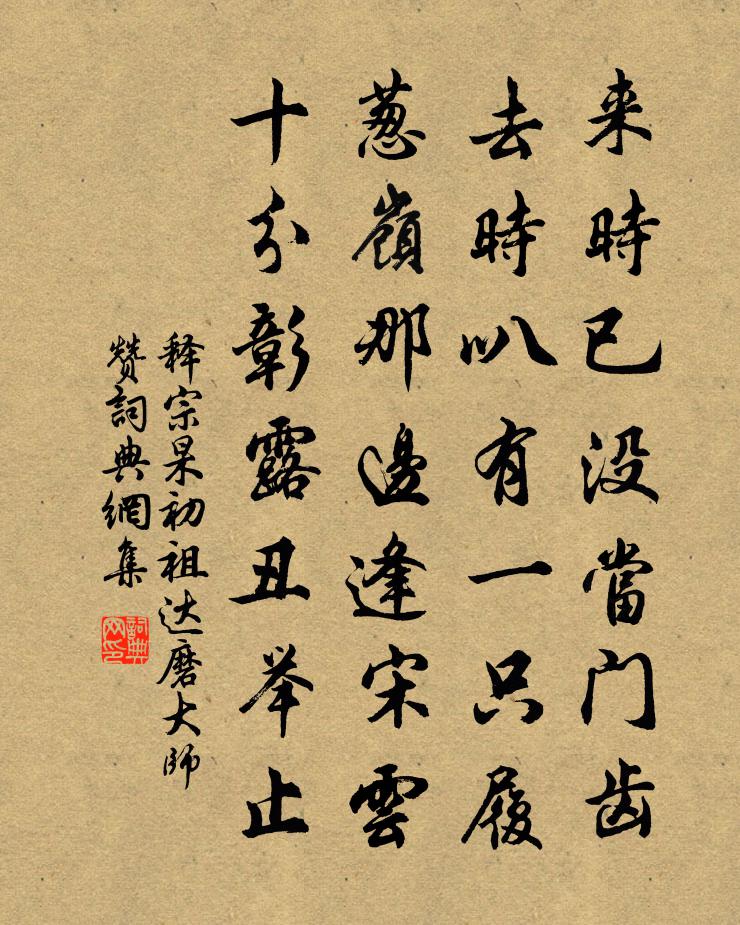 来時已没當门齿
去時叭有一只履
葱嶺那邊逢宋雲
十分彰露丑举止
释宗杲初祖达磨大師
赞詞典網集
詞典网印